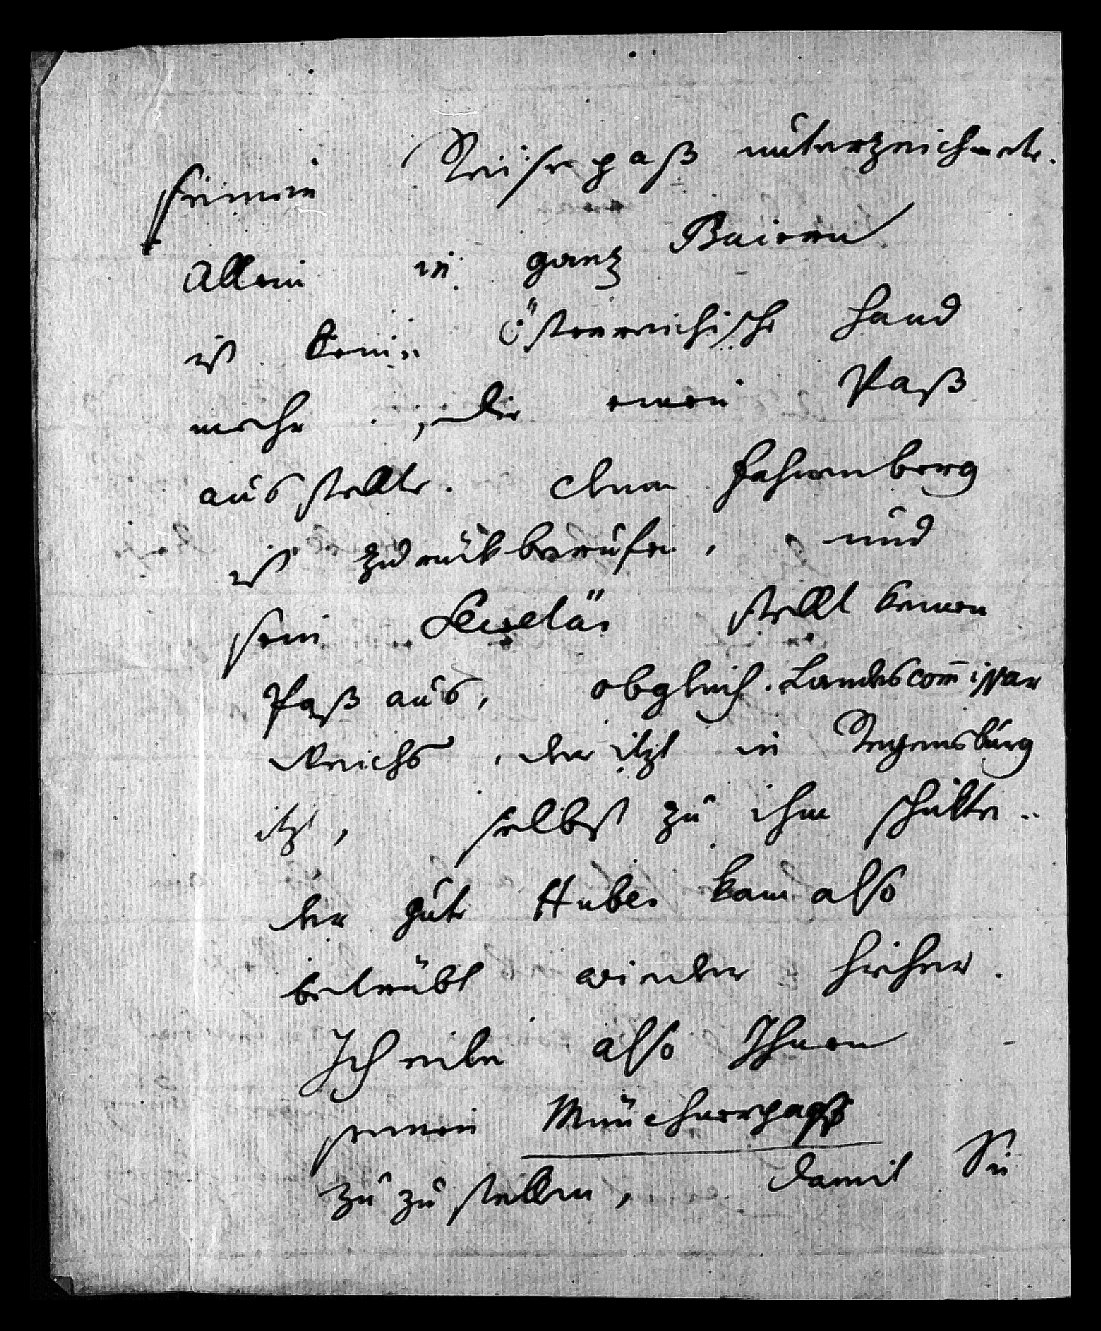 seinen Reisepaß unterzeichnete.
Allein in ganz Baiern
ist keine Österreichische Hand
mehr, die einen Paß
ausstellte. denn Fahnenberg
ist zurückberufen, und
sein Secretär stellt keinen
Paß aus, obgleich Landescom̅issar
Reichs, der itzt in Regensburg
ist, selbst zu ihm schikte..
der gute Huber kam also
betrübt wieder hieher.
Ich eile also Ihnen
seinen Münchnerpaß
zuzustellen, damit Sie